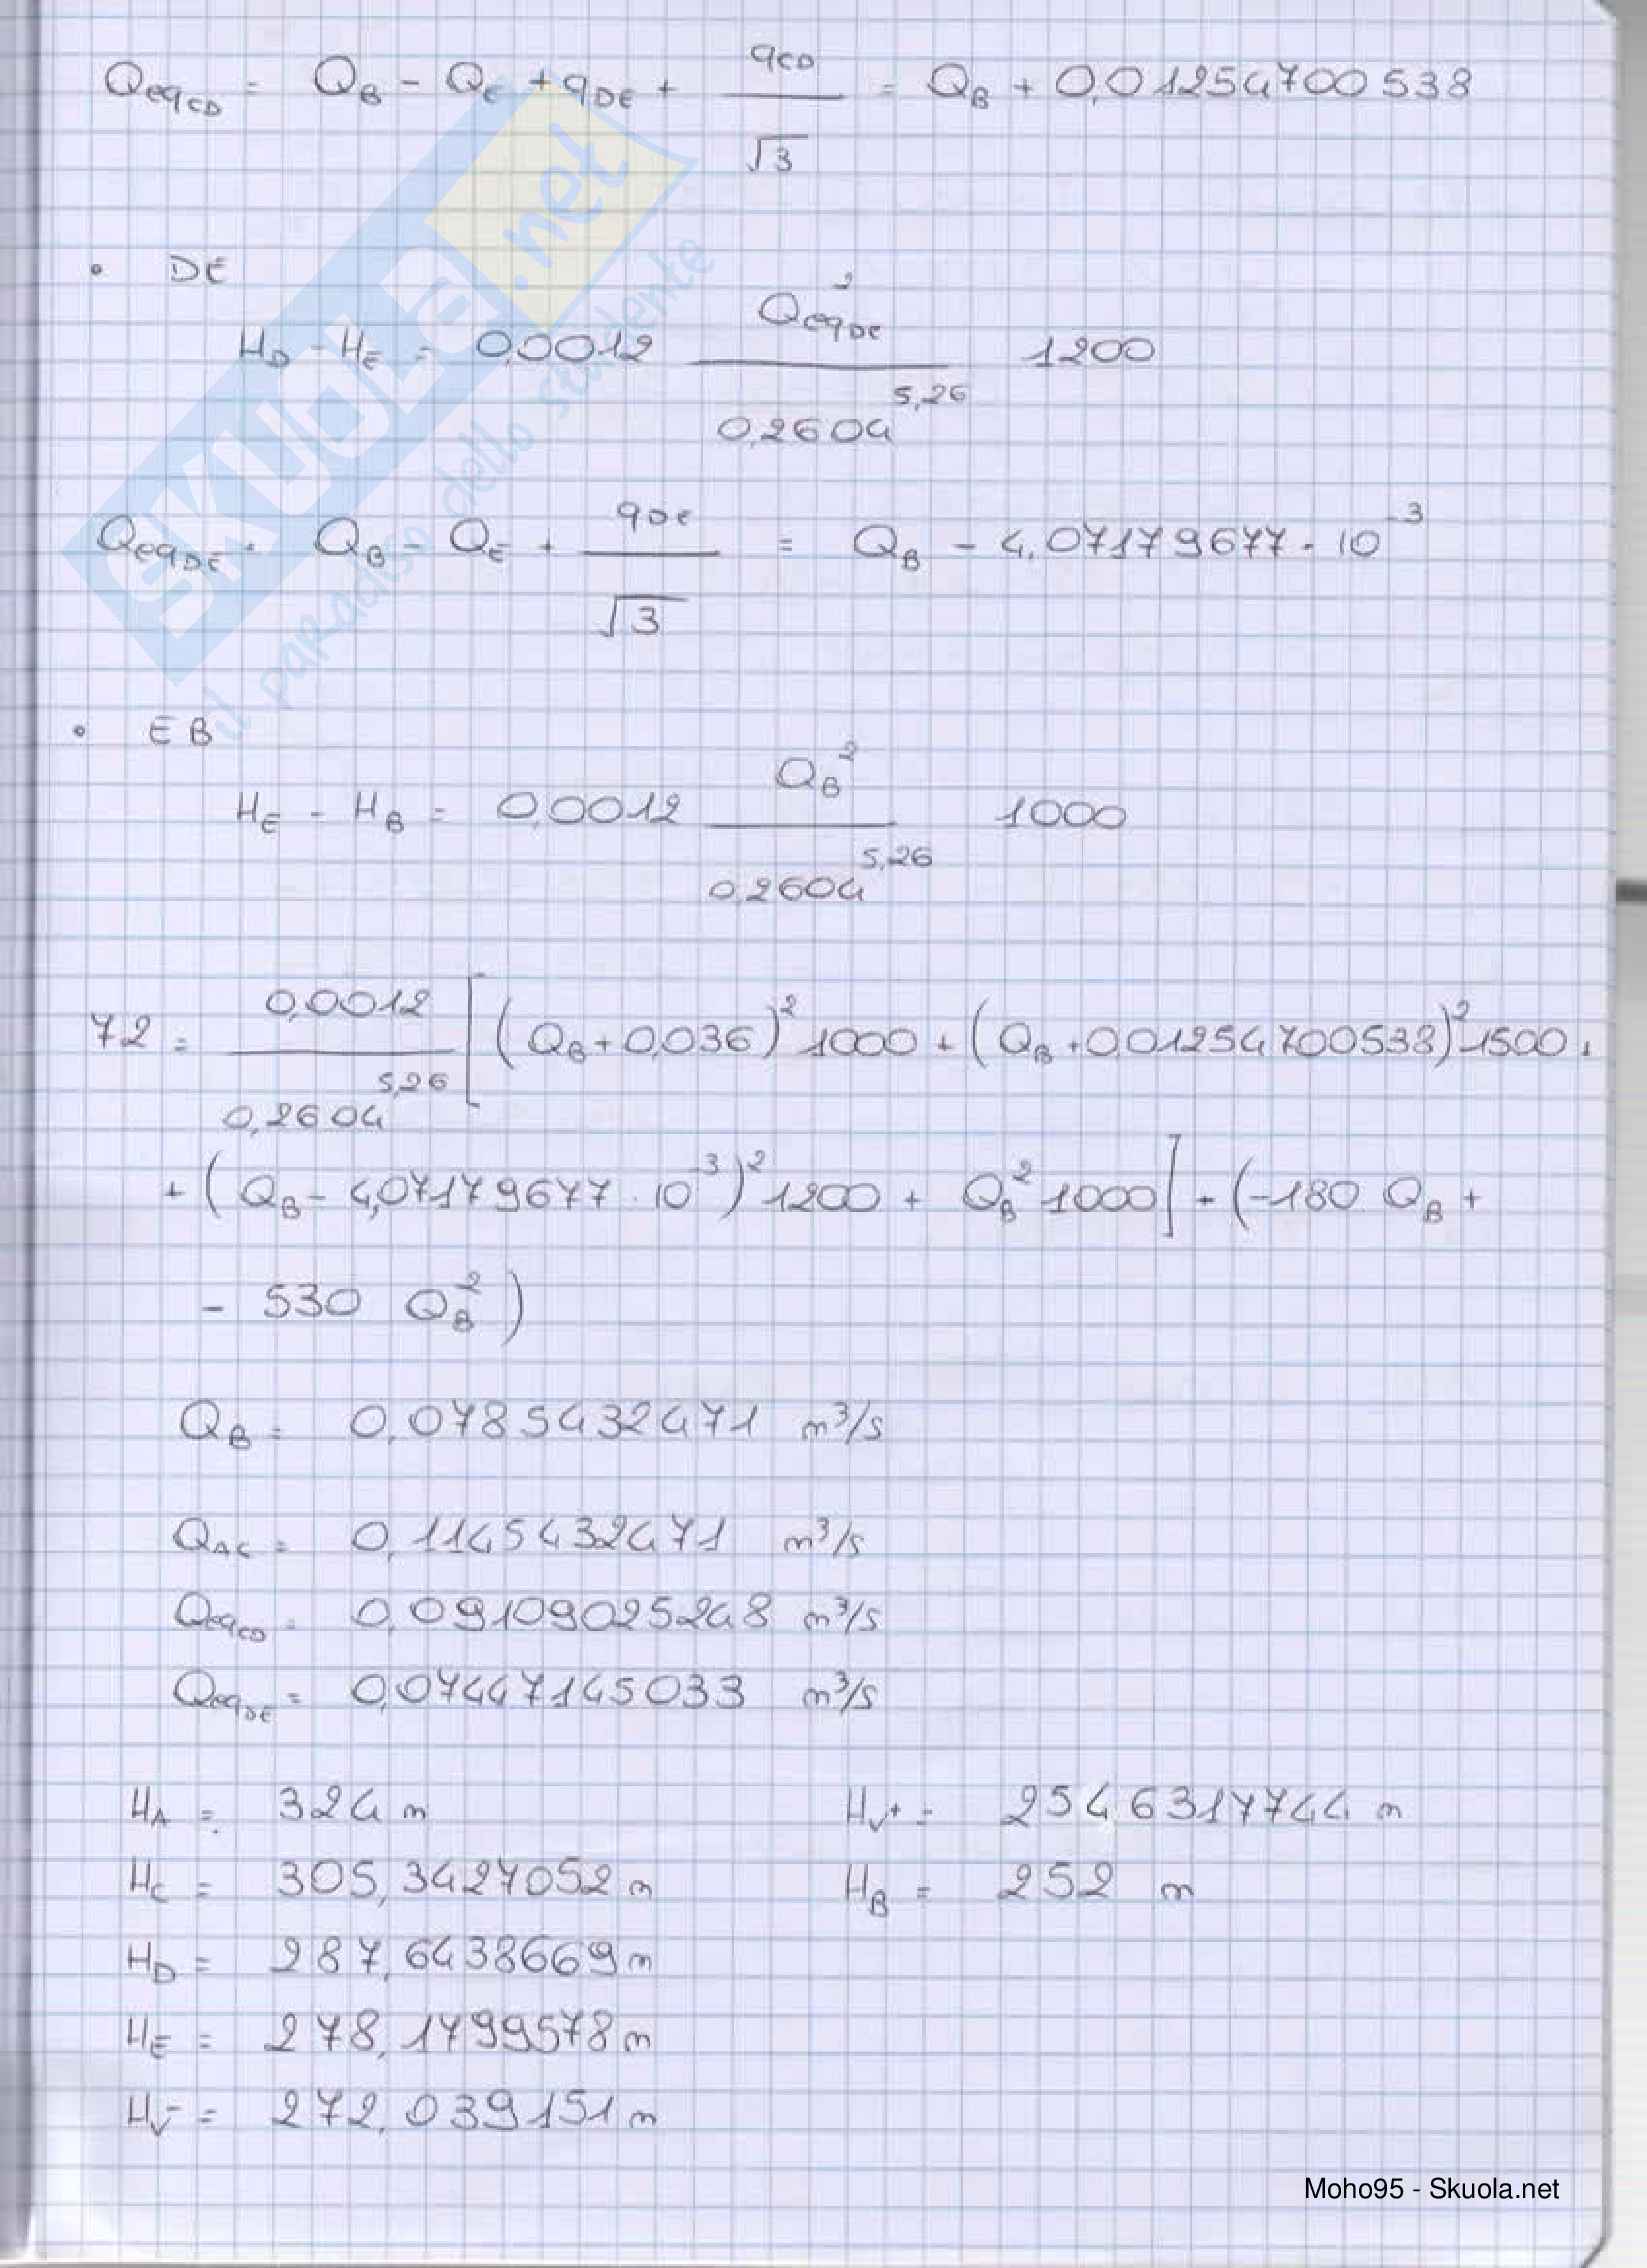 Q_eqCD = Q_B - Q_E + q_DE + q_CD / √3 = Q_B + 0,01254700538
• DE
H_D - H_E = 0,0012 Q_eqDE² / 0,2604^5,26 1200
Q_eqDE = Q_B - Q_E + q_DE / √3 = Q_B - 4,07179677 · 10^-3
• EB
H_E - H_B = 0,0012 Q_B² / 0,2604^5,26 1000
72 = 0,0012 / 0,2604^5,26 [ (Q_B + 0,036)² 1000 + (Q_B + 0,01254700538)² 1500 +
+ (Q_B - 4,07179677 · 10^-3)² 1200 + Q_B² 1000 ] - (-180 Q_B +
- 530 Q_B²)
Q_B = 0,0785432471 m³/s
Q_AC = 0,1145432471 m³/s
Q_eqCD = 0,09109025248 m³/s
Q_eqDE = 0,07447145033 m³/s
H_A = 324 m H_V+ = 254,6317744 m
H_C = 305,3427052 m H_B = 252 m
H_D = 287,6438669 m
H_E = 278,1799578 m
H_V- = 272,039151 m
SKUOLA.net
il paradiso dello studente
Moho95 - Skuola.net